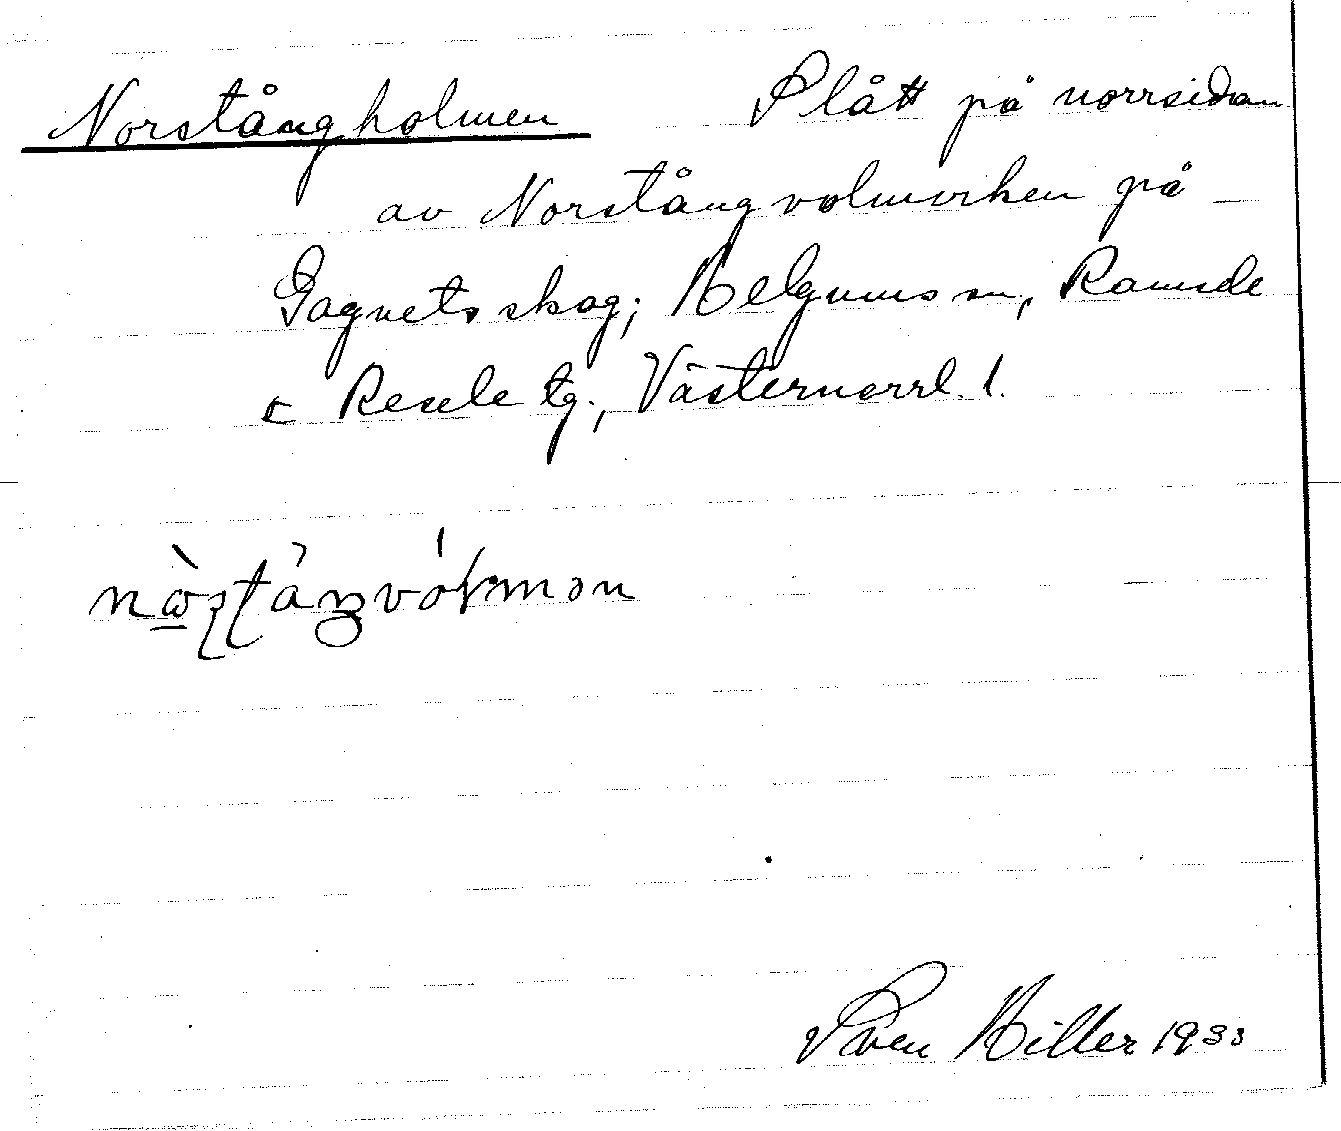 Norstångholmen Slått på norrsidan
av Norstångvolmviken på
Gagnets skog; Helgums sn, Ramsele
o Resele tg., Västernorrl. l.
Sven Hiller 1933